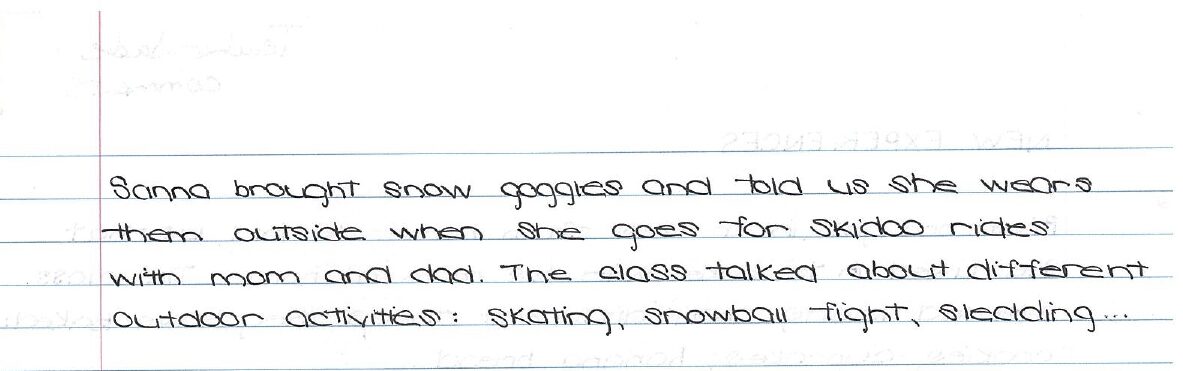 Sanna brought snow goggles and told us she wears
them outside when she goes for skidoo rides
with mom and dad. The class talked about different
outdoor activities: skating, snowball fight, sledding...